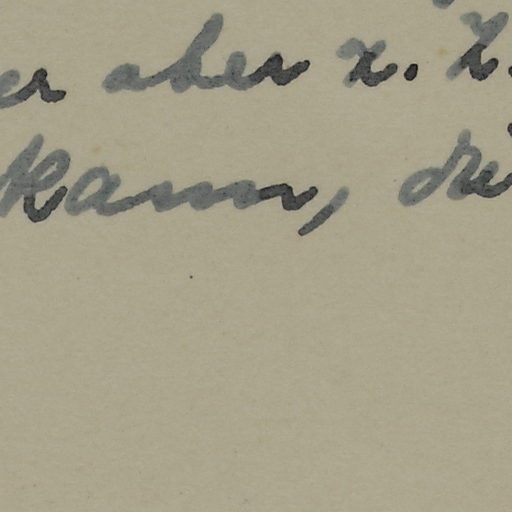 er aber z. Z.
kann, die